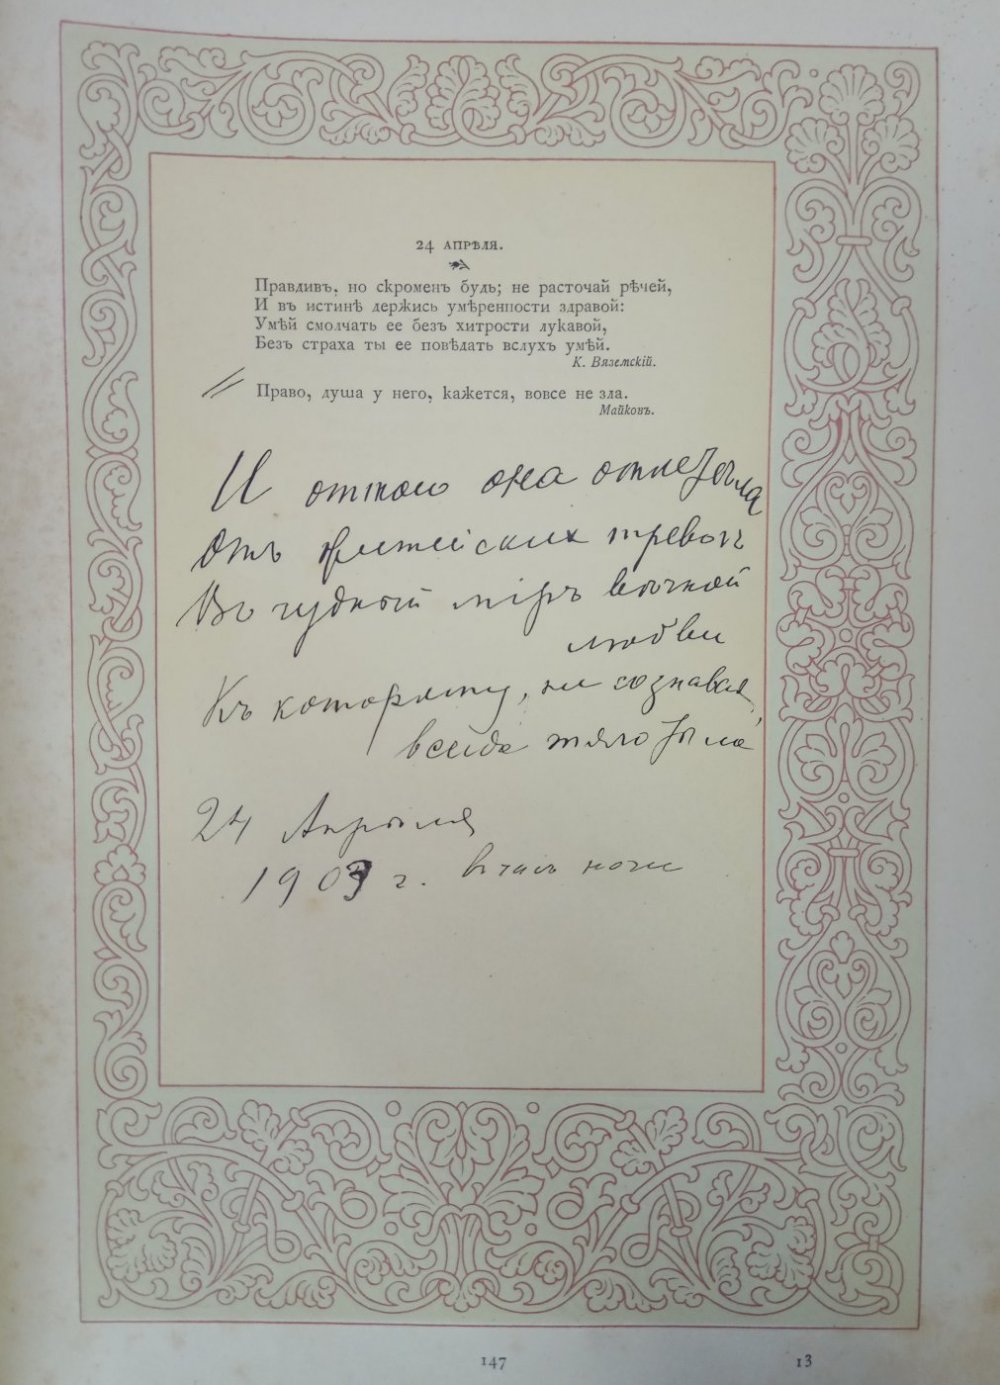 24 АПРѢЛЯ.
Правдивъ, но скроменъ будь; не расточай рѣчей,
И въ истинѣ держись умѣренности здравой:
Умѣй смолчать ее безъ хитрости лукавой,
Безъ страха ты ее повѣдать вслухъ умѣй.
К. Вяземскій.
Право, душа у него, кажется, вовсе не зла.
Майковъ.
И оттого она отлетѣла
Отъ житейскихъ тревогъ
Въ чудный міръ вѣчной
любви
Къ которому, не сознавая,
всегда тяготѣла
24 Апрѣля
1903 г. въ часъ ночи
147
13